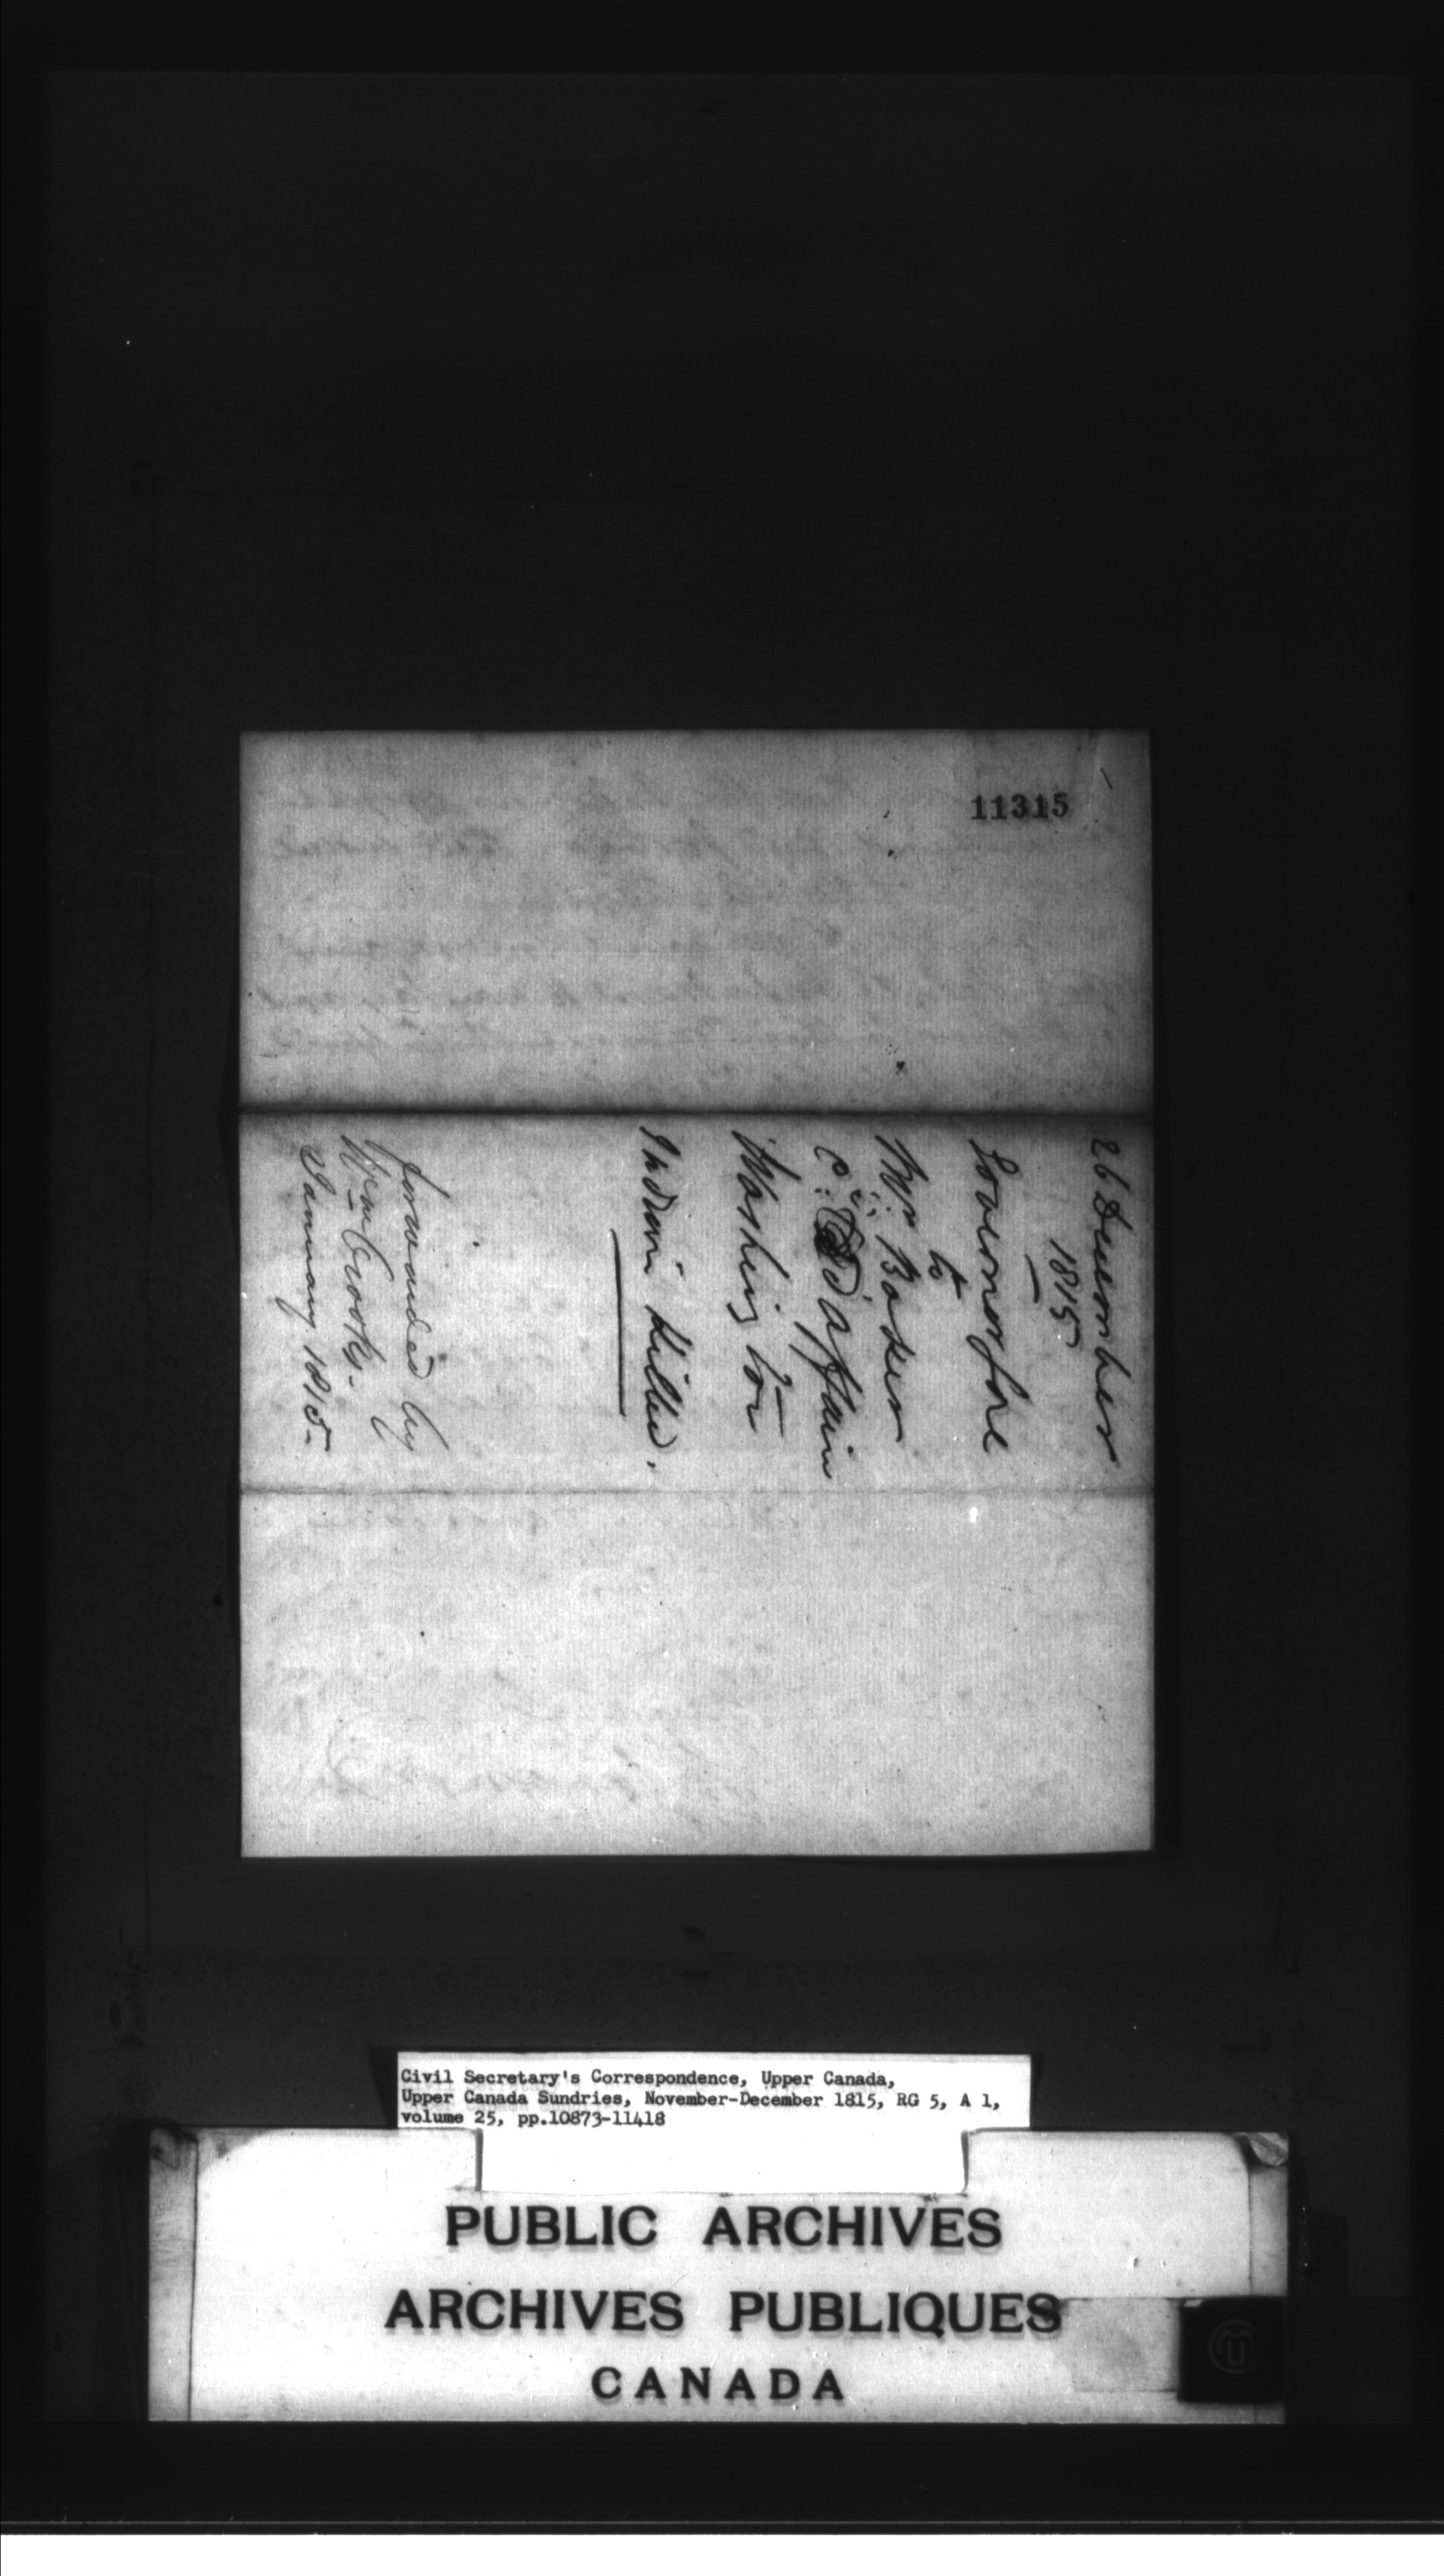 11315
26 December
1815
Governor Gore
to
Mr. Baker
C. D'affair
Washington
Indian killed.
forwarded by
Wm Crooks-
January 1815-
Civil Secretary's Correspondence, Upper Canada,
Upper Canada Sundries, November-December 1815, RG 5, A 1,
volume 25, pp.10873-11418
PUBLIC ARCHIVES
ARCHIVES PUBLIQUES
CANADA